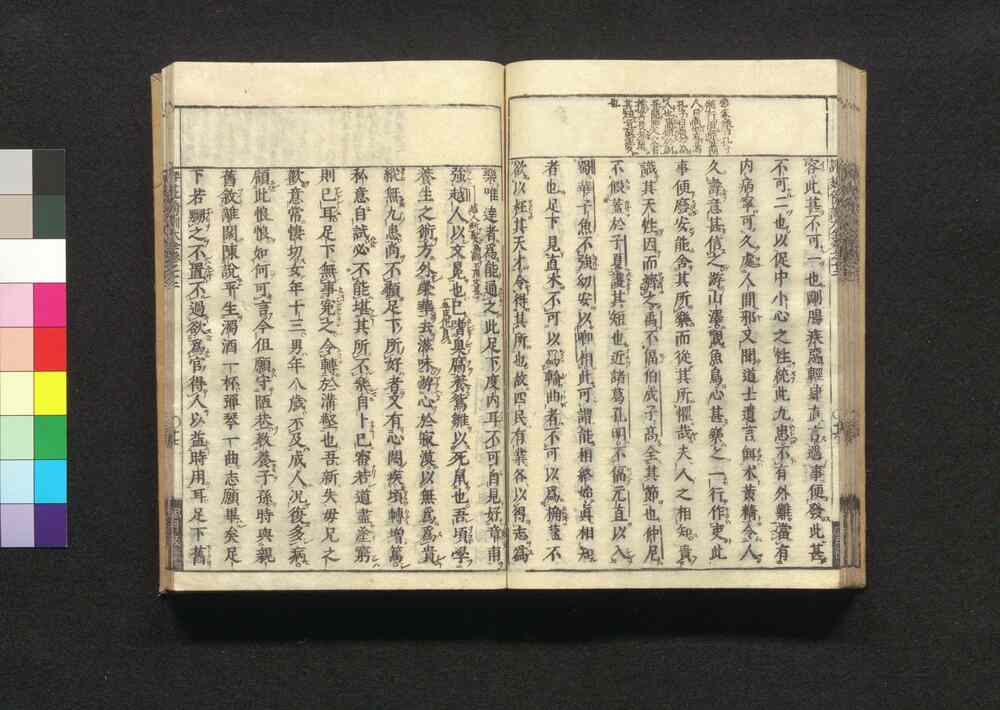 容此甚不可一也剛腸疾惡輕肆直言遇事便發此甚
不可二也以促中小心之性統此九患不有外難當有
内病寧可久處人間邪又聞道士遺言餌术黄精令人
久壽意甚信之游山澤觀魚鳥心甚樂之一行作吏此
事便廢安能舍其所樂而從其所懼哉夫人之相知貴
識其天性因而濟之禹不偪伯成子高全其節也仲尼
不假蓋於子夏護其短也近諸葛孔明不偪元直以入
蜀華子魚不強幼安以卿相此可謂能相終始真相知
者也足下見直木不可以爲輪曲者不可以爲桷蓋不
欲以枉其天才令得其所也故四民有業各以得志爲
樂唯達者爲能通之此足下度内耳不可自見好章甫
強越人以文冕也已嗜臭腐養鴛雛以死鼠也吾頃學
養生之術方外榮華去滋味游心於寂漠以無爲爲貴
縱無九患尚不顧足下所好者又有心悶疾頃轉增篤
私意自試必不能堪其所不樂自卜已審若道盡塗窮
則已耳足下無事冤之令轉於溝壑也吾新失母兄之
歡意常悽切女年十三男年八歳不及成人况復多病
顧此悢悢如何可言今但願守陋巷教養子孫時與親
舊敘離闊陳說平生濁酒一杯彈琴一曲志願畢矣足
下若嬲之不置不過欲爲官得人以益時用耳足下舊